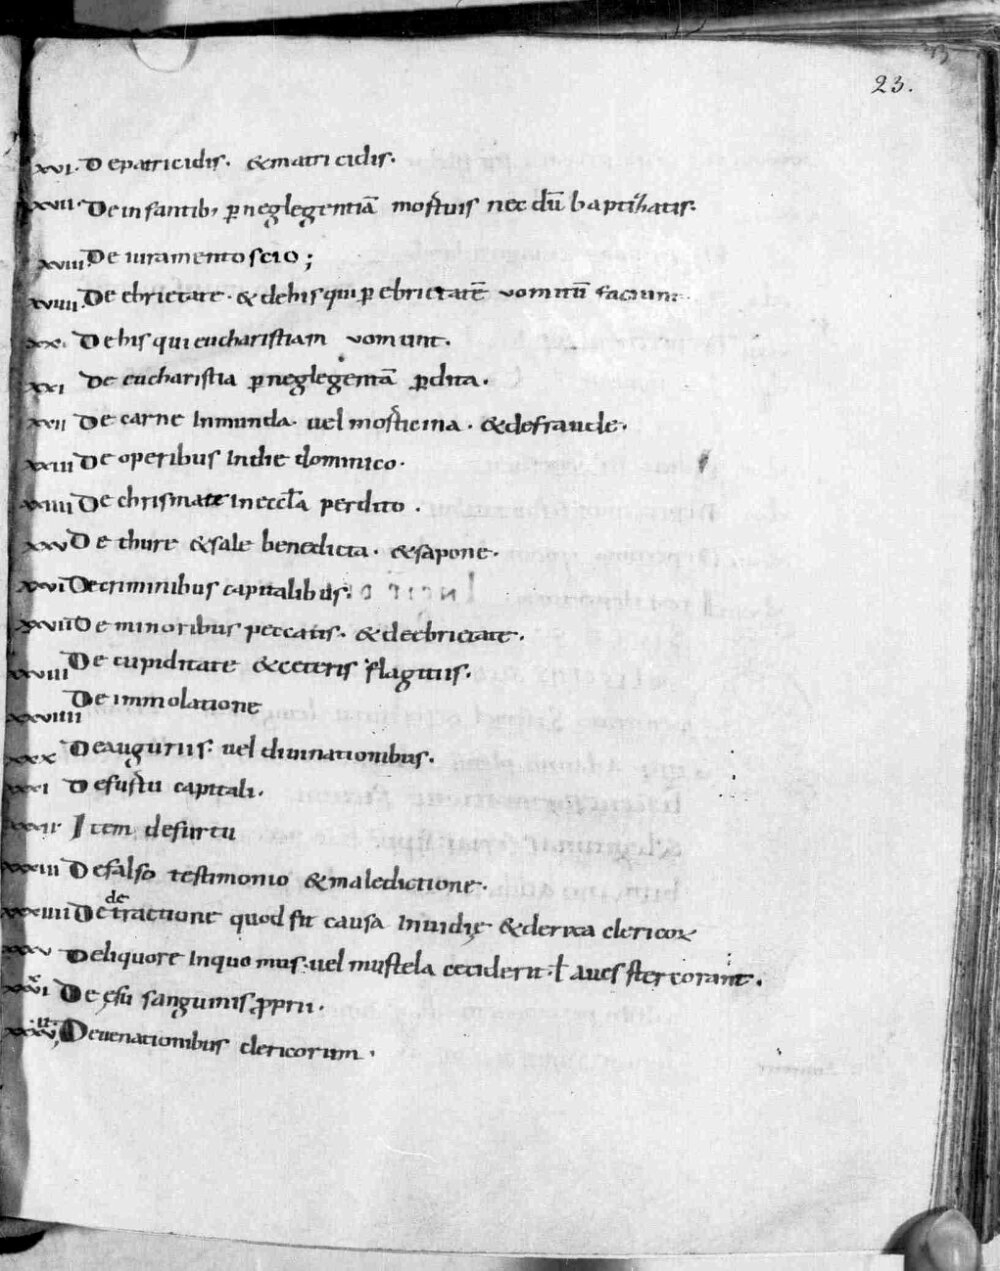 23.
xvi. De patricidis. & matricidis.
xvii. De infantib; p neglegentiā mortuis nec dū baptizatis.
xviii. De iuramento scio;
xviiii. De ebrietate. & de his qui p ebrietatē vomitū faciunt.
xx. De his qui eucharistiam vomunt.
xxi De eucharistia p neglegentiā pdita.
xxii De carne Inmunda. uel morticina. & de fraude.
xxiii De operibus In die dominico.
xxiiii De chrismate In eccła perdito.
xxv De thure & sale benedicta. & sapone.
xxvi De criminibus capitalibus.
xxvii De minoribus peccatis. & de ebrietate.
xxviii De cupiditate & ceteris flagitiis.
xxviiii De immolatione
xxx De auguriis. uel diuinationibus.
xxxi De furtu capitali.
xxxii Item de furtu
xxxiii De falso testimonio & maledictione.
xxxiiii De detractione quod fit causa Inuidię & de rixa clericoꝝ
xxxv De liquore In quo mus. uel mustela ceciderit. ł aues stercorant.
xxxvi De ęsu sanguinis pprii.
xxxvii De uenationibus clericorum.